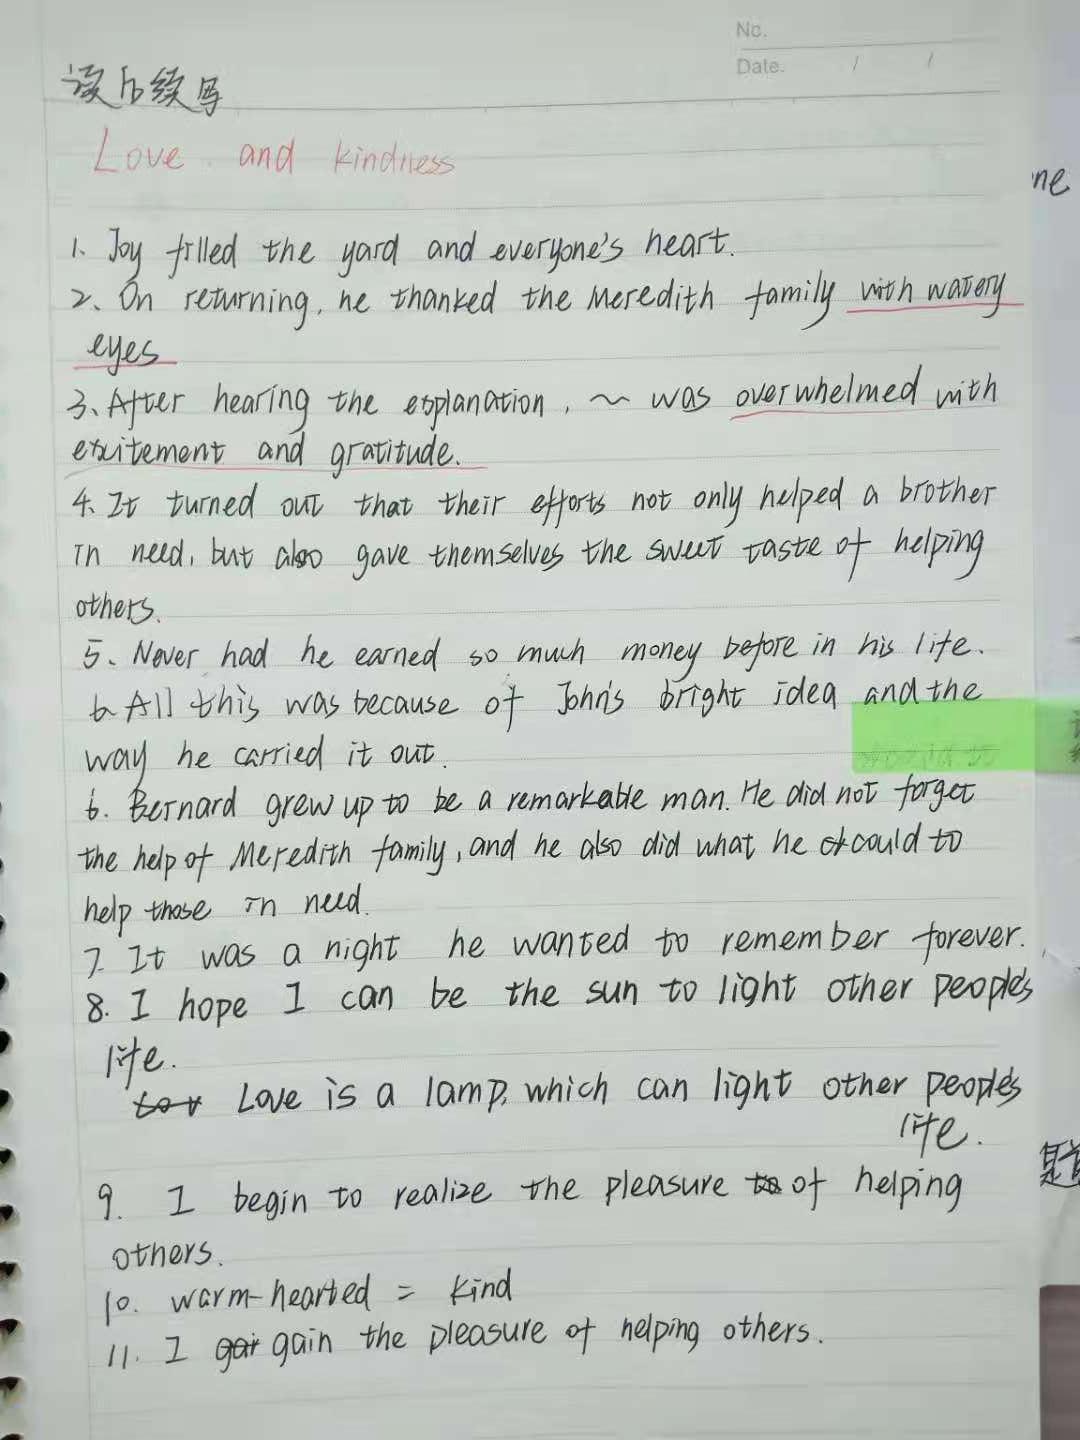 No.
Date. / /
读后续写
Love and kindness
ne
1. Joy filled the yard and everyone's heart.
2、On returning, he thanked the Meredith family with watery
eyes
3、After hearing the explanation, ~ was overwhelmed with
excitement and gratitude.
4. It turned out that their efforts not only helped a brother
in need, but also gave themselves the sweet taste of helping
others.
5、Never had he earned so much money before in his life.
6 All this was because of John's bright idea and the
way he carried it out.
6. Bernard grew up to be a remarkable man. He did not forget
the help of Meredith family, and he also did what he could to
help those in need.
7. It was a night he wanted to remember forever.
8. I hope I can be the sun to light other people's
life.
Love is a lamp, which can light other people's
life.
9. I begin to realize the pleasure of helping
others.
10. warm-hearted = kind
11. I gain the pleasure of helping others.